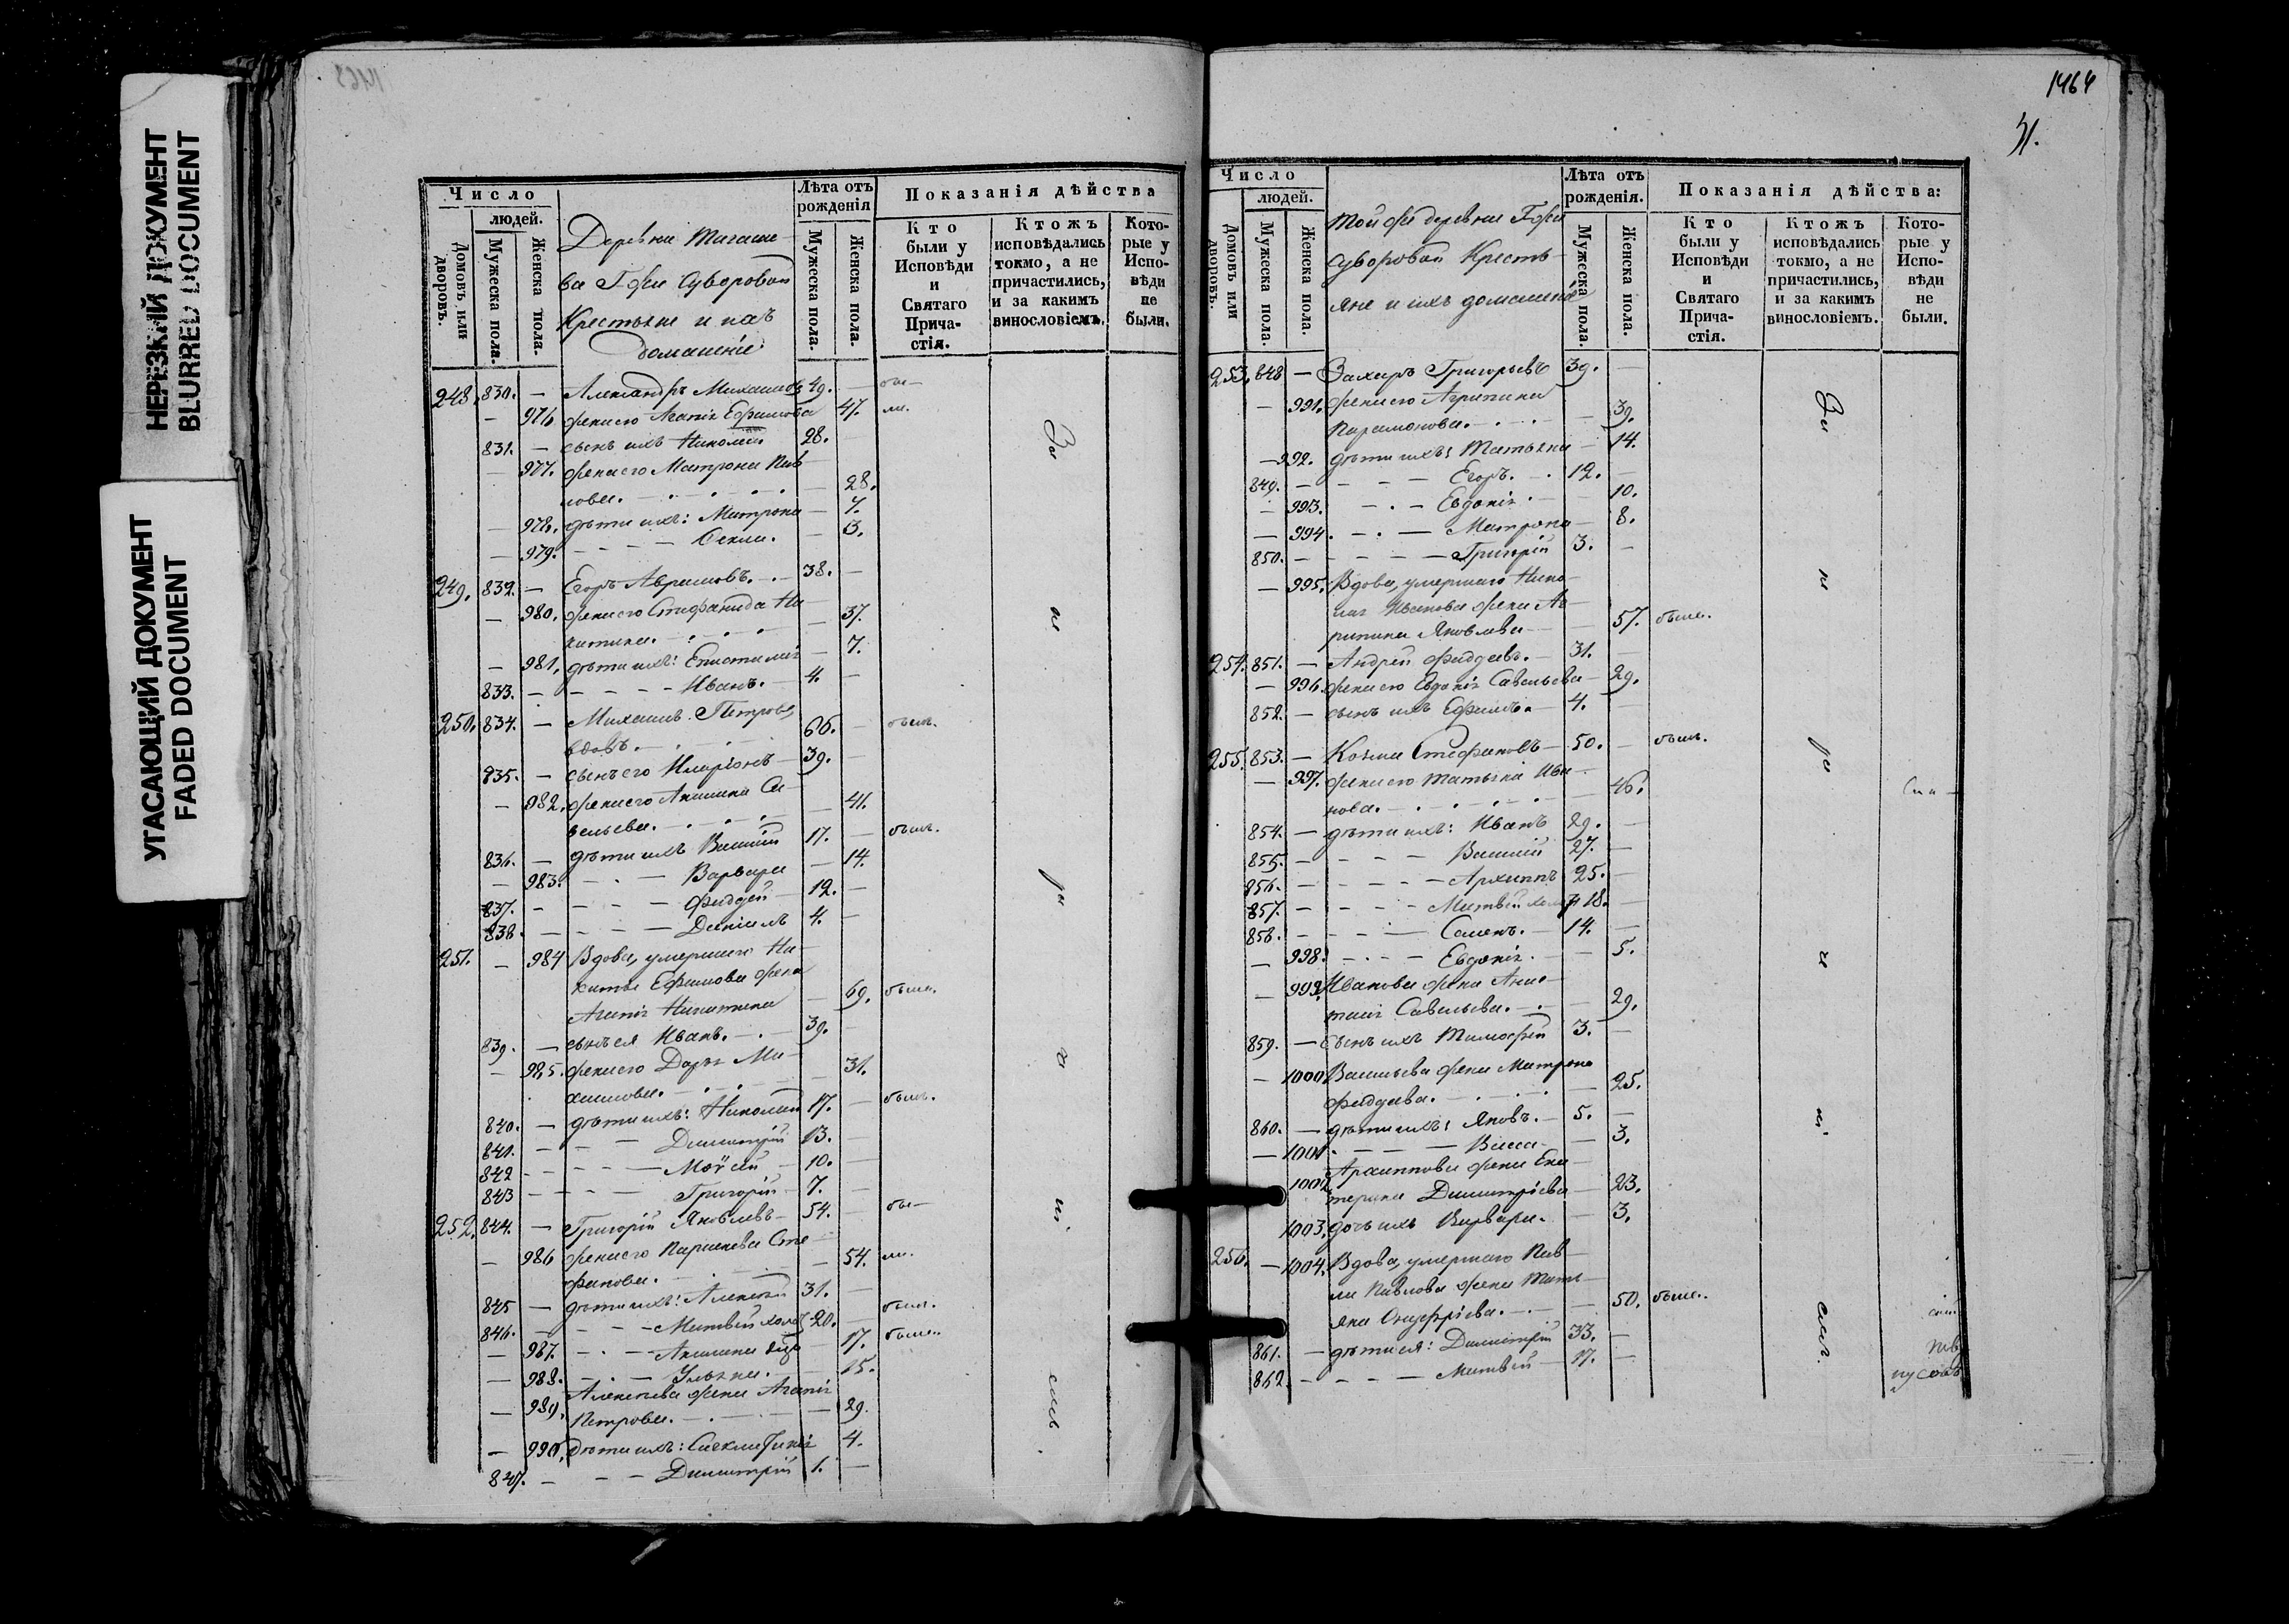 НЕРЕЗКИЙ ДОКУМЕНТ
BLURRED DOCUMENT
УГАСАЮЩИЙ ДОКУМЕНТ
FADED DOCUMENT
Число
людей.
Домовъ или дворовъ.
Мужеска пола.
Женска пола.
Деревни
ва Г-жи Суворовой
Крестьяне и ихъ
домашніе
Лѣта отъ рожденія
Мужеска пола.
Женска пола.
Показанія дѣйства
Кто были у Исповѣди и Святаго Прича-стія.
Ктожъ исповѣдались токмо, а не причастились, и за какимъ винословіемъ.
Кото-рые у Испо-вѣди не были.
248. 830. — Александръ 49. —
— 976 жена его Агапія Ефимова 47.
831. — сынъ ихъ Николай 28. —
— 977. жена его Матрона Пав-
лова. — 28.
— 978. дѣти ихъ: Матрона — 7.
— 979. Фекла. — 3.
249. 832. — Егоръ Аврамовъ. 38. —
— 980. жена его Стефанида Ни-
китина. — 37.
— 981. дѣти ихъ: Епистимія — 7.
833. — Иванъ. 4. —
250. 834. — Михаилъ Петровъ,
вдовъ. 66. — былъ.
835. — сынъ его Иларіонъ 39. —
— 982. жена его Акилина Са-
вельева. — 41.
836. — дѣти ихъ Василій 17. — былъ.
— 983. Варвара — 14.
837. — Фаддей 12. —
838. — Даніилъ 4. —
251. — 984 Вдова, умершаго Ни-
киты Ефимова жена
Агапія Никитина — 69. была.
839. — сынъ ея Иванъ. 39. —
— 985. жена его Дарья Ми-
хаилова. — 31.
840. — дѣти ихъ: Николай 17. — былъ.
841. — Димитрій 13. —
842 — Моѵсей 10. —
843 — Григорій 7. —
252. 844. — Григорій Яковлевъ 54. — бы-
— 986 жена его Параскева Сте-
фанова. — 54. ли.
845 — дѣти ихъ: Алексѣй 31. —
846. — Матвѣй холо 20. — былъ.
— 987. Акилина — 17. была.
— 988. Ульяна. — 15.
— 989. Алексѣева жена Агапія
Петрова. — 29.
— 990. дѣти ихъ: — 4.
847. — Димитрій 1. —
За не ра че ні емъ.
1464
Число
людей.
Домовъ или дворовъ.
Мужеска пола.
Женска пола.
Той же деревни Г-жи
Суворовой Кресть-
яне и ихъ домашніе
Лѣта отъ рожденія.
Мужеска пола.
Женска пола.
Показанія дѣйства:
Кто были у Исповѣди и Святаго Прича-стія.
Ктожъ исповѣдались токмо, а не причастились, и за какимъ винословіемъ.
Кото-рые у Испо-вѣди не были.
253. 848 — Захаръ Григорьевъ 39. —
— 991. жена его Агрипина
Парамонова. — 39.
— 992. дѣти ихъ: Татьяна — 14.
849. — Егоръ. 12. —
— 993. Евдокія — 10.
— 994. Матрона — 8.
850. — Григорій 3. —
— 995. Вдова, умершаго Нико-
лая Иванова жена Аг-
рипина Яковлева — 57. была.
254. 851. — Андрей Фаддеевъ. 31. —
— 996. жена его Евдокія Савельева — 29.
852. — сынъ ихъ Ефимъ. 4. —
255. 853. — Козма Стефановъ 50. — былъ.
— 997. жена его Татьяна Ива-
нова. — 46.
854. — дѣти ихъ: Иванъ 29. —
855. — Василій 27. —
856. — Архиппъ 25. —
857. — Матвѣй 18. —
858. — Семенъ. 14. —
— 998. Евдокія. — 5.
— 999. Иванова жена Анас-
тасія Савельева. — 29.
859. — сынъ ихъ Тимофей 3. —
— 1000 Васильева жена Матрона
Фаддеева. — 25.
860. — дѣти ихъ: Яковъ. 5. —
— 1001. Васса — 3.
1002 Архиппова жена Ека-
терина Димитріева — 23.
1003. дочь ихъ Варвара. — 3.
256. — 1004. Вдова, умершаго Пав-
ла Павлова жена Тать-
яна Онуфріева. — 50. была.
861. — дѣти ея: Димитрій 33. —
862. — Матвѣй 17. —
За не ра че ні емъ.